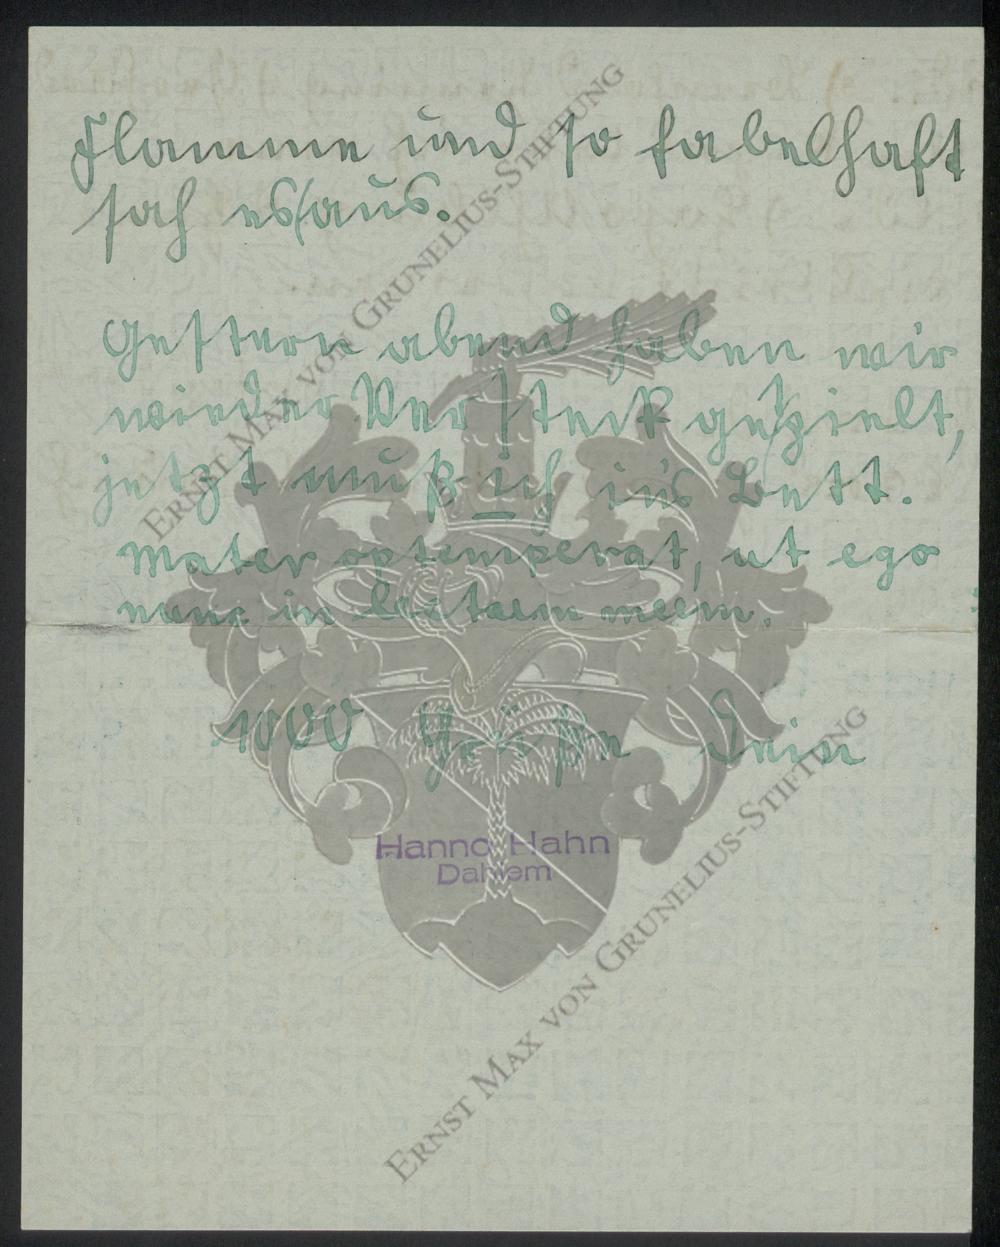 Flamme und so fabelhaft
sah es aus.
Gestern abend haben wir
wieder Versteck gespielt,
jetzt muß ich in's Bett.
Mater optemperat, ut ego
nunc in lectum meum.
1000 Grüße Dein
Hanno Hahn
Dahlem
ERNST MAX VON GRUNELIUS-STIFTUNG
ERNST MAX VON GRUNELIUS-STIFTUNG